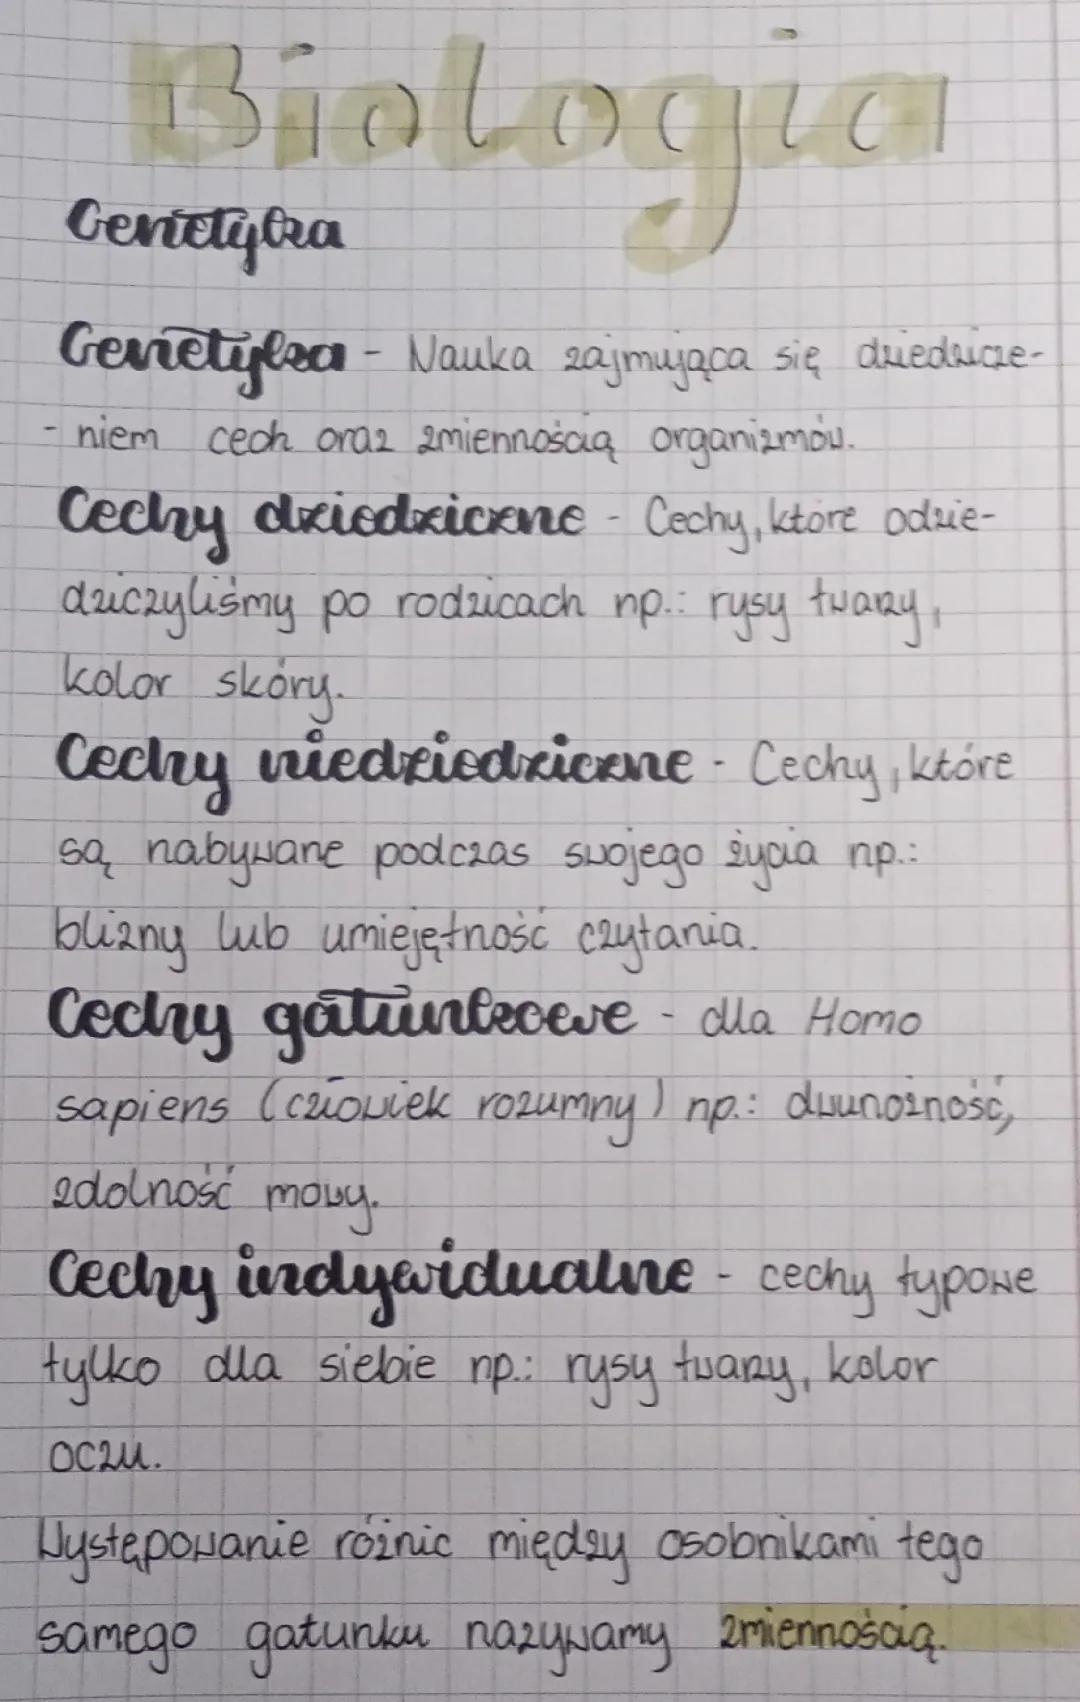 Biologia
Genetyka
Genetyka - Nauka zajmująca się dziedzicze-
- niem cech oraz zmiennością organizmów.
Cechy dziedziczne - Cechy, które odzie-
dziczyliśmy po rodzicach np.: rysy twarzy,
kolor skóry.
Cechy niedziedziczne - Cechy, które
są nabywane podczas swojego życia np.:
blizny lub umiejętność czytania.
Cechy gatunkowe - dla Homo
sapiens (człowiek rozumny) np.: dwunożność,
zdolność mowy.
Cechy indywidualne - cechy typowe
tylko dla siebie np.: rysy twarzy, kolor
oczu.
Występowanie różnic między osobnikami tego
samego gatunku nazywamy zmiennością.